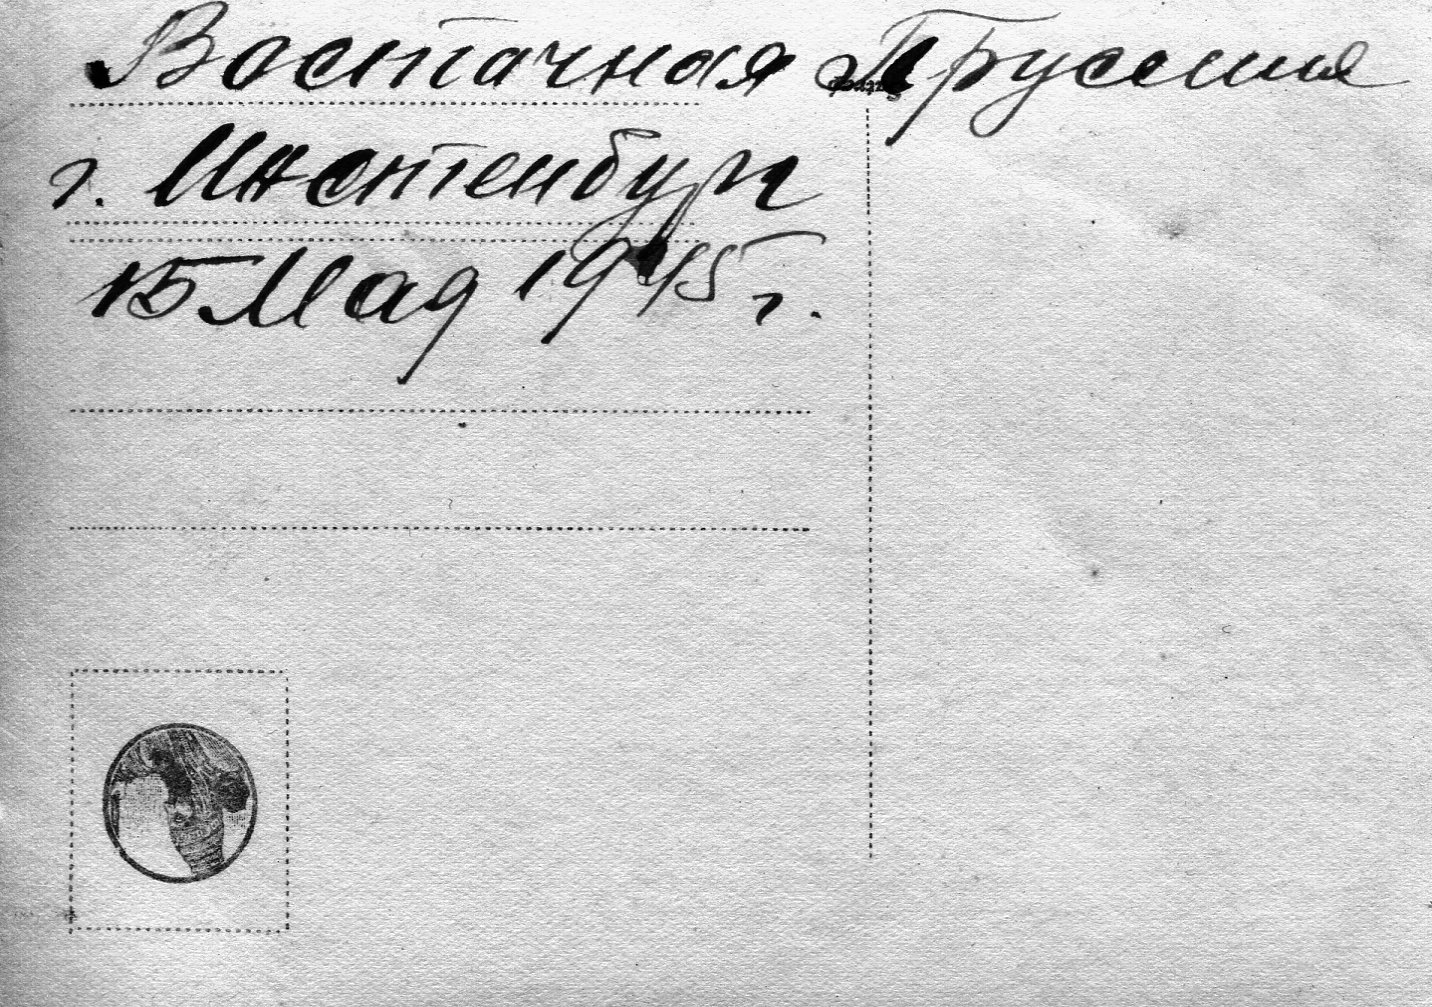 Восточная Пруссия
г. Инстенбург
15 Мая 1945 г.